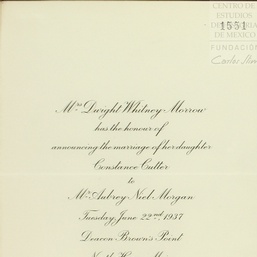 CENTRO DE
ESTUDIOS
DE HISTORIA
DE MEXICO
1551
FUNDACIÓN
Carlos Slim
Mrs Dwight Whitney Morrow
has the honour of
announcing the marriage of her daughter
Constance Cutter
to
Mr Aubrey Niel Morgan
Tuesday, June 22nd, 1937
Deacon Brown's Point
North Haven